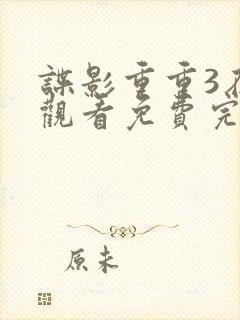 諜影重重3
觀看免費完
原未